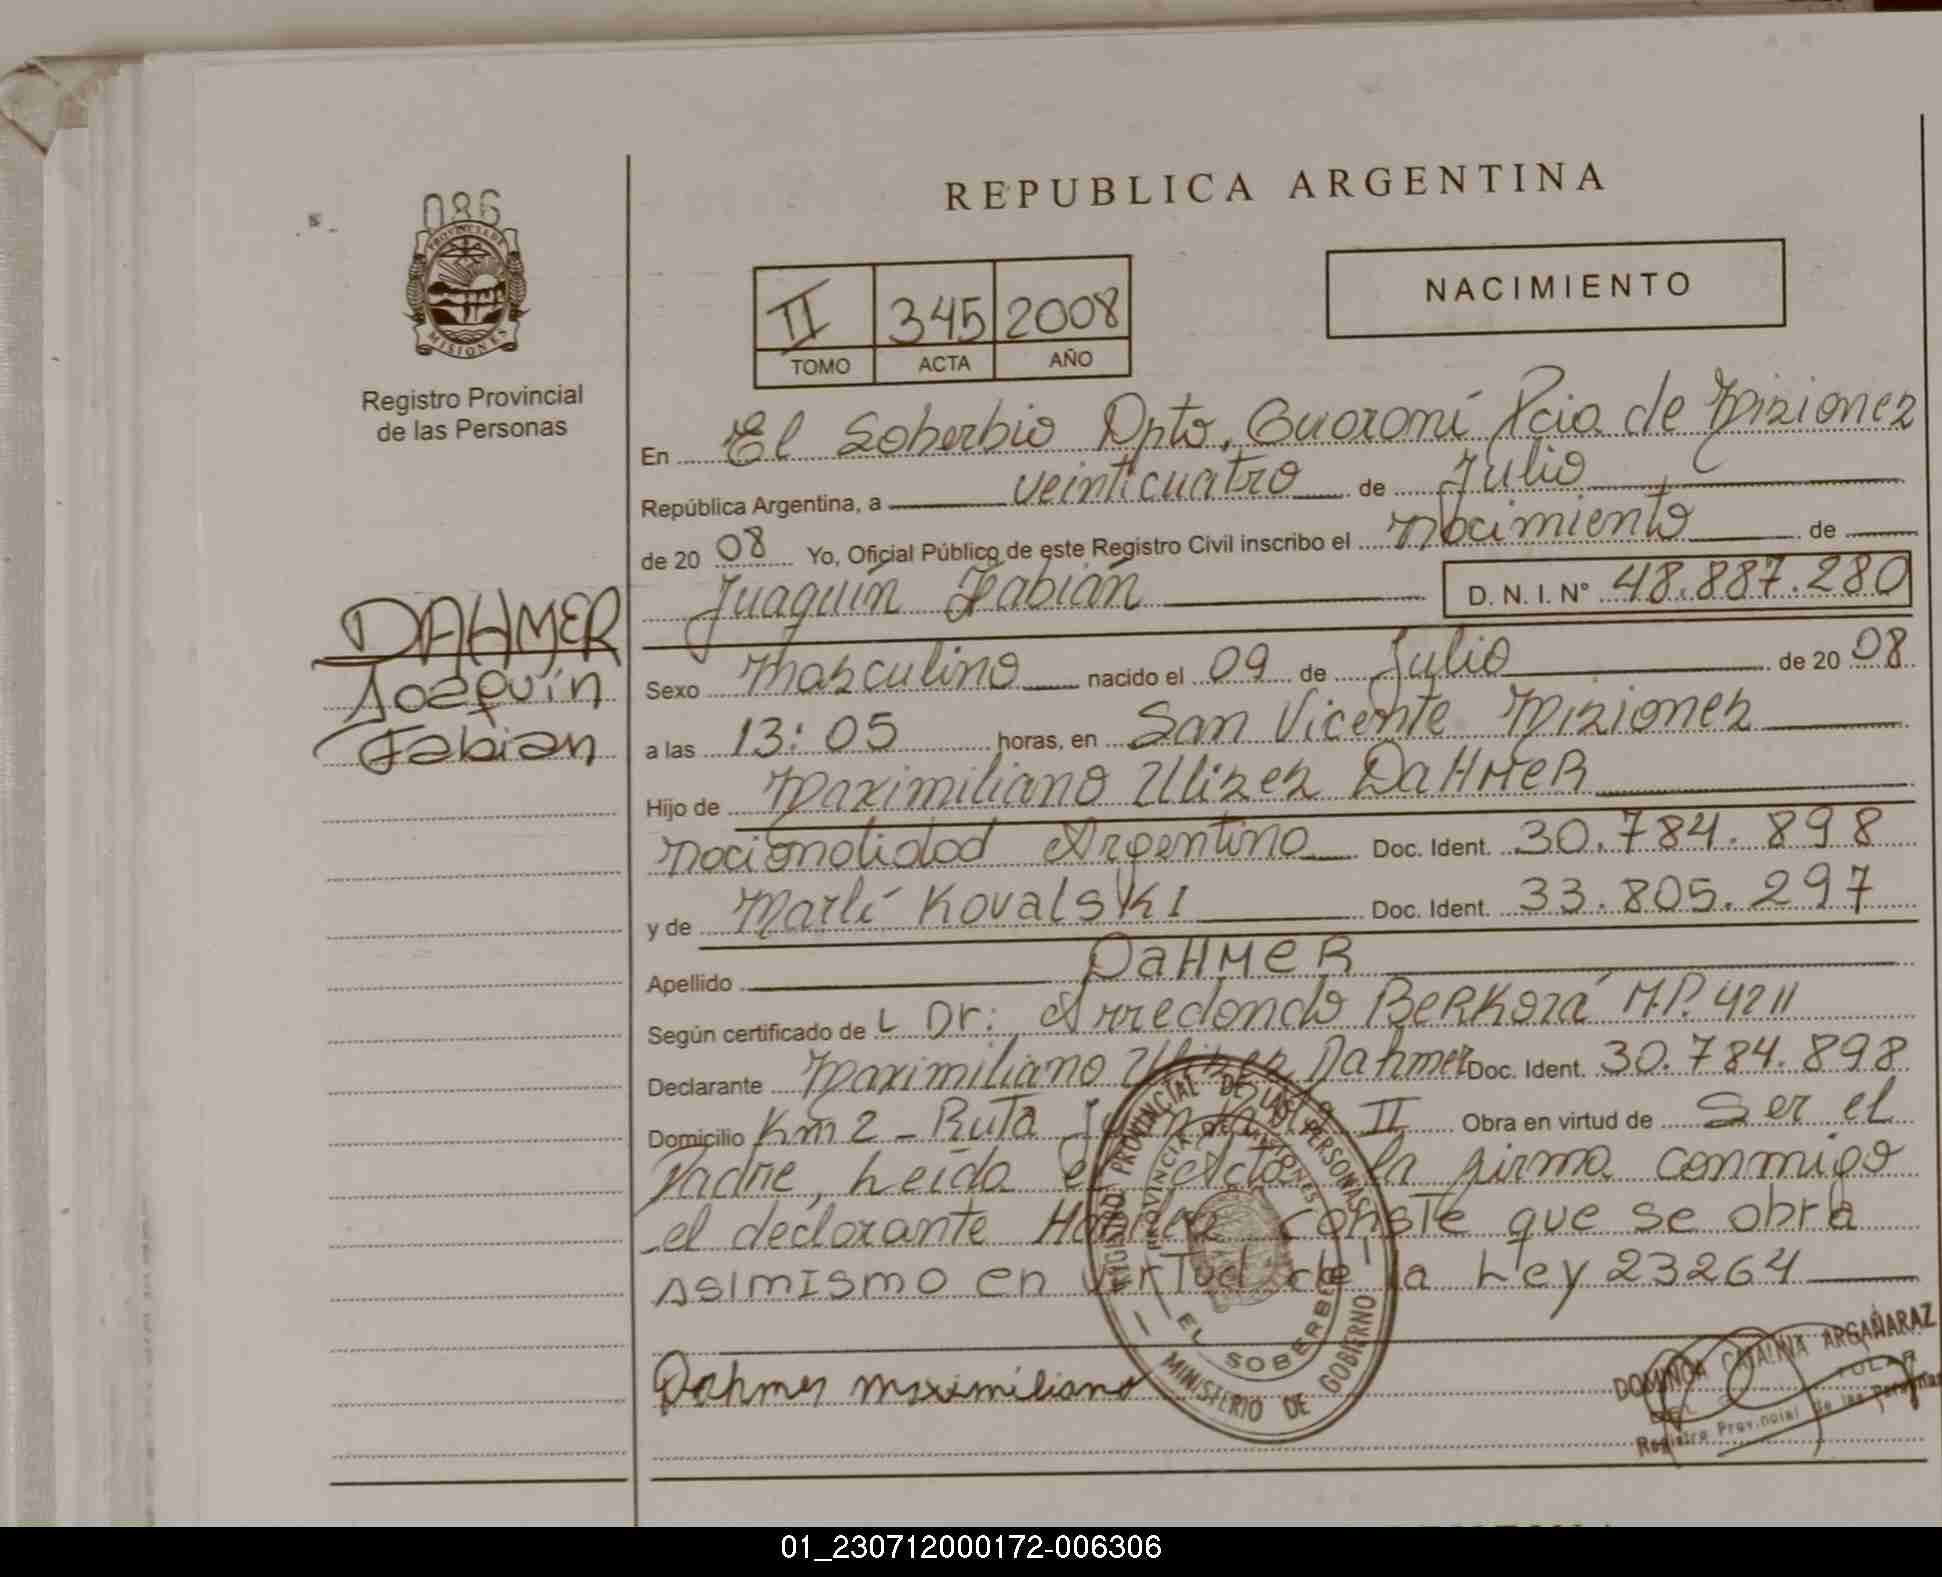 086
PROVINCIA DE
MISIONES
Registro Provincial
de las Personas
DAHMER
Joaquín
Fabian
REPUBLICA ARGENTINA
NACIMIENTO
II 345 2008
TOMO ACTA AÑO
En El Soberbio Dpto. Guaraní Pcia de Misiones
República Argentina, a veinticuatro de Julio
de 20 08 Yo, Oficial Público de este Registro Civil inscribo el Nacimiento de
Juaquín Fabián D. N. I. N° 48.887.280
Sexo Masculino nacido el 09 de Julio de 20 08
a las 13:05 horas, en San Vicente Misiones
Hijo de Maximiliano Ulises DaHMeR
Nacionalidad Argentino Doc. Ident. 30.784.898
y de Marlí KovalsKI Doc. Ident. 33.805.297
Apellido DaHMeR
Según certificado de L Dr: Arredondo M.P. 4211
Declarante Maximiliano Ulises Dahmer Doc. Ident. 30.784.898
Domicilio Km 2 - Ruta II Obra en virtud de Ser el
Padre, Leída el Acta la firma conmigo
el declarante consTe que se obra
Asimismo en virTud de la Ley 23264
Dahmer Maximiliano
REGISTRO PROVINCIAL DE LAS PERSONAS
PROVINCIA DE MISIONES
EL SOBERBIO
MINISTERIO DE GOBIERNO
DOMINGA CATALINA ARGAÑARAZ
Registro Provincial de las Personas
01_230712000172-006306